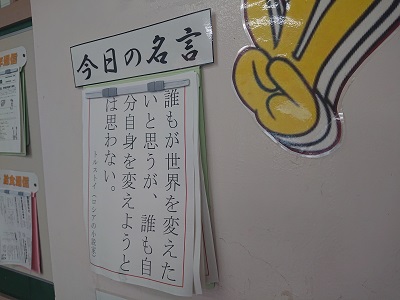 今日の名言
誰もが世界を変えた
いと思うが、誰も自
分自身を変えようと
は思わない。
トルストイ（ロシアの小説家）